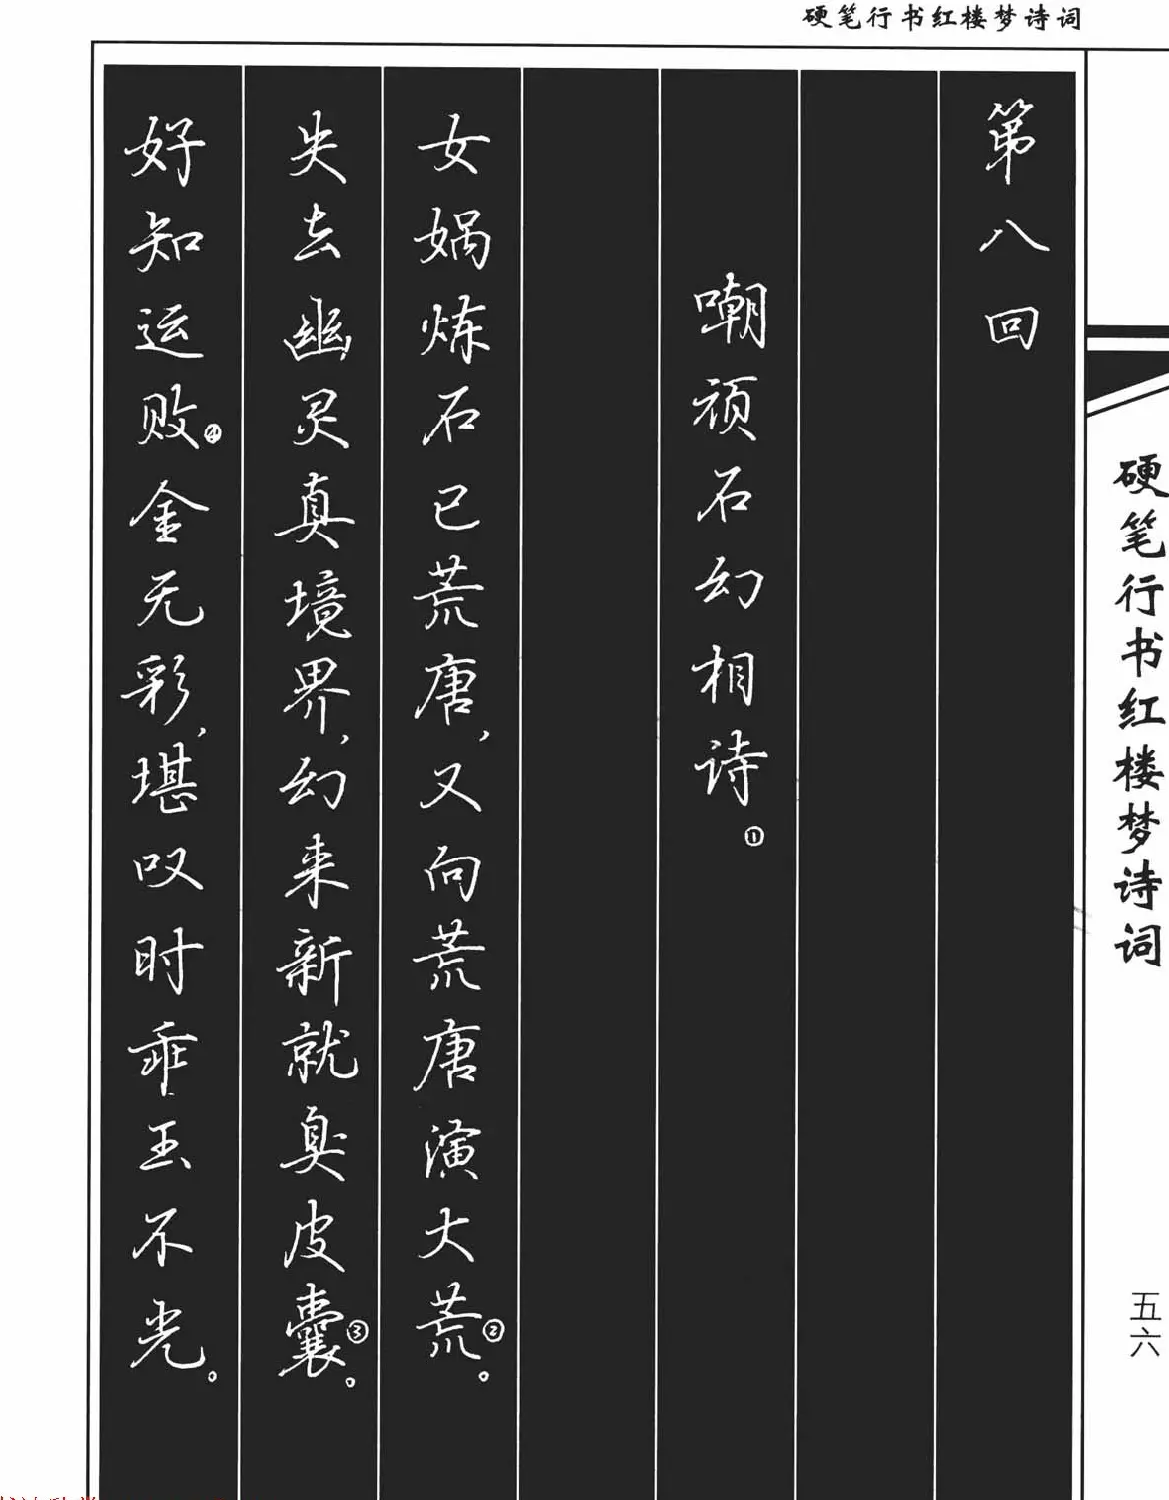 硬笔行书红楼梦诗词
硬笔行书红楼梦诗词
五六
第八回
嘲顽石幻相诗①
女娲炼石已荒唐，又向荒唐演大荒②。
失去幽灵真境界，幻来新就臭皮囊③。
好知运败④金无彩，堪叹时乖玉不光。